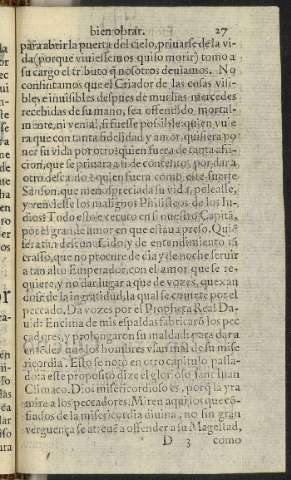 bien obrar. 27
para abrir la puerta del cielo, priuarse de la vi-
da (porque viuiessemos quiso morir) tomo a
su cargo el tributo q̃ nosotros deuiamos. No
consintamos que el Criador de las cosas visi-
bles e inuisibles despues de muchas mercedes
recebidas de su mano, sea offendido mortal-
mente, ni venial, si fuesse possible: quien vuie
ra que con tanta fidelidad y amor quisiera po
ner su vida por otro: quien fuera de tanta afi-
cion, que se priuara a si de contentos por dar a
otro descanso: quien fuera como este fuerte
Sanson, que menospreciada su vida, pelease,
y venciesse los malignos Philisteos de los Iu-
dios? Todo esto executo en si nuestro Capitã,
por el grande amor en que estaua preso. Quiẽ
sera tan desconocido, y de entendimiento tã
crasso, que no procure de dia y de noche seruir
a tan alto Emperador, con el amor que se re-
quiere, y no dar lugar a que de vozes, quexan
dose de la ingratitud, la qual se comete por el
peccado. Da vozes por el Propheta Real Da-
uid: Encima de mis espaldas fabricarõ los pec
cadores, y prolongaron su maldad: para dar a
entẽder que los hombres vsan mal de su mise
ricordia. Esto se noto en otro capitulo passa-
do: a este proposito dize el glorioso sant Iuan
Climaco. Dios misericordioso es, porq̃ la yra
mira a los peccadores. Miren aqui los que cõ-
fiados de la misericordia diuina, no sin gran
verguença se atreuẽ a offender a su Magestad,
D 3 como